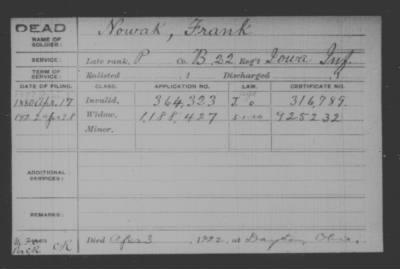 DEAD
NAME OF SOLDIER:
Nowak, Frank
SERVICE:
Late rank, P Co. B, 22 Reg't Iowa Inf.
TERM OF SERVICE:
Enlisted , 1 Discharged , 1
DATE OF FILING. CLASS. APPLICATION NO. LAW. CERTIFICATE NO.
1880 Apr. 17 Invalid, 364,323 316,789
Apr 28 Widow, 1,188,427 925232
Minor,
ADDITIONAL SERVICES:
REMARKS:
Died Apr 3, 1922, at Dayton, Ohio.